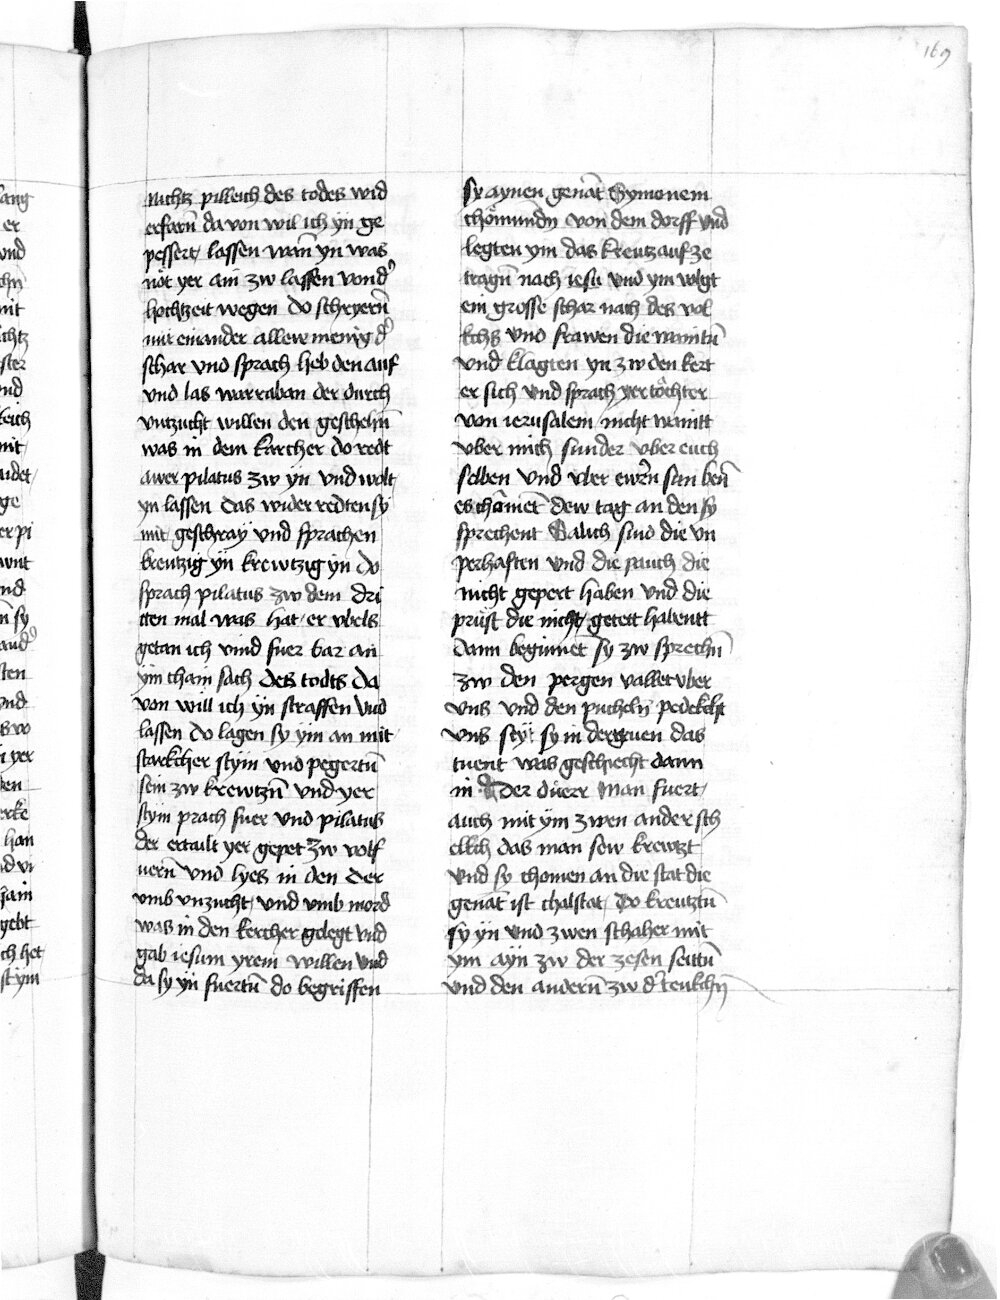 169
nichtz pilleich des todes wid
erfarn̄ da von wil ich yn ge
pessert lassen wan̄ yn was
nöt yer ain zw lassen von d᾽
hochtzeit wegen do schryern̄
mit einander allew menig d᾽
schar vnd sprach heb den auf
vnd las warraban der durch
vntzucht willen den geschehn̄
was in dem karcher do redt
awer pilatus zw yn vnd wolt
yn lassen das wider redten sy
mit geschray vnd sprachen
kreutzig yn krewtzig yn do
sprach pilatus zw dem dri
tten mal was hat er vbels
getan ich vind fuer bar an
ym chain sach des todts da
von will ich yn straffen vnd
lassen do lagen sy ym an mit
starkcher stym vnd pegertn̄
sein zw krewtzn̄ vnd yer
stym prach fuer vnd pilatus
der ertailt yer gepet zw volf
uern̄ vnd lyes in den der
vmb vnzucht vnd vmb mord
was in den kercher gelegt vnd
gab iesum yrem willen vnd
da sy yn fuertn̄ do begriffen
sy aynen genāt Symonem
von dem dorff vnd
legten ym das kreutz auf ze
tragn̄ nach iesu vnd ym volgt
ein grosse schar nach des vol
kchs vnd frawen die waintn̄
vnd klagten yn zw den kert
er sich vnd sprach yer töchter
von ierusalem nicht waintt
vber mich sunder vber euch
selben vnd vber ewrn̄ sun
es chāmet dew tag an den sy
sprechent Salich sind die vn
perhaften vnd die pauch die
nicht gepert haben vnd die
prüst die nicht getett habentt
dann beginnēt sy zw sprechn̄
zw den pergen vallet vber
vns vnd den pucheln pedekcht
vns seyt sy in dergruen das
tuent was geschiecht dann
in d᾽ der duerr Man fuert
auch mit ym zwen ander sch
elkch das man sew krewtzt
vnd sy chomen an die stat die
genāt ist chalstat Do kreutztn̄
sy yn vnd zwen schaher mit
ym ayn zw der zesen seittn̄
vnd den andern̄ zw d᾽ tenkchn̄